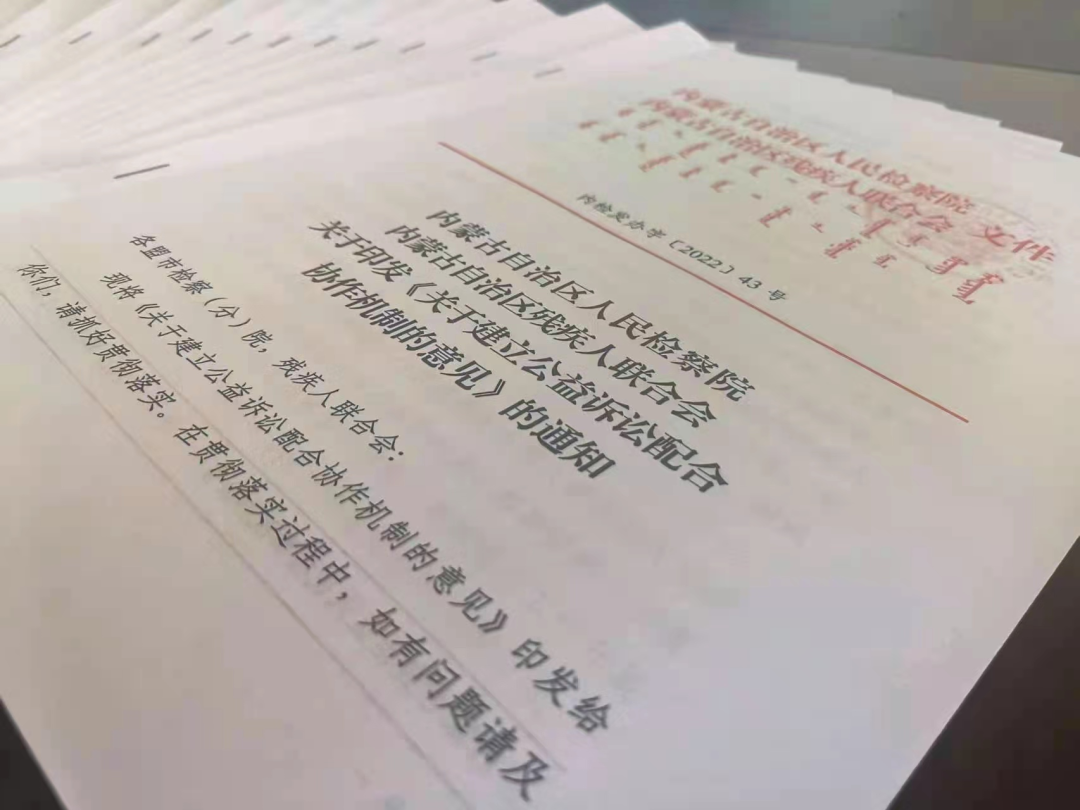 内蒙古自治区人民检察院
内蒙古自治区残疾人联合会 文件
内检发办字〔2022〕43 号
内蒙古自治区人民检察院
内蒙古自治区残疾人联合会
关于印发《关于建立公益诉讼配合
协作机制的意见》的通知
各盟市检察（分）院，残疾人联合会：
现将《关于建立公益诉讼配合协作机制的意见》印发给
你们，请抓好贯彻落实。在贯彻落实过程中，如有问题请及